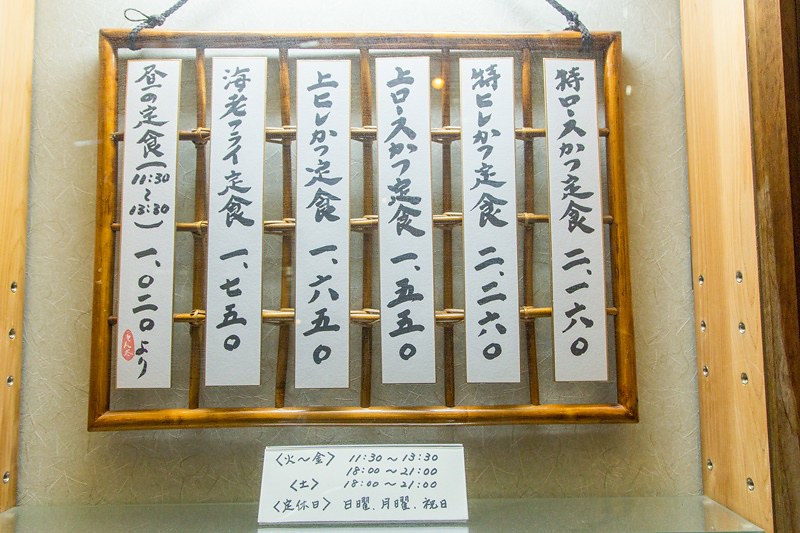 特ロースかつ定食 二、一六〇
特ヒレかつ定食 二、二六〇
上ロースかつ定食 一、五五〇
上ヒレかつ定食 一、六五〇
海老フライ定食 一、七五〇
昼の定食(11:30〜13:30) 一、〇二〇より
〈火〜金〉 11:30〜13:30
18:00〜21:00
〈土〉 18:00〜21:00
〈定休日〉 日曜、月曜、祝日